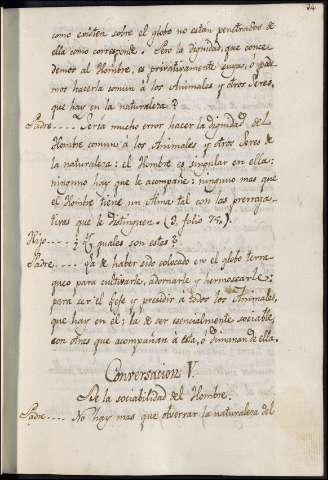 34
como existen sobre el globo no estan penetrados de
ella como corresponde. Pero la dignidad, que conce
demos al Hombre, es privativamente suya, o pode
mos hacerla comun à los Animales y otros Seres,
que hay en la naturaleza?
Padre.... Sería mucho error hacer la dignidad de el
Hombre comun à los Animales y otros Seres de
la naturaleza: el Hombre es singular en ella:
ninguno hay que le acompañe: ninguno mas que
el Hombre tiene un Alma tal con las prerroga
tivas que le distinguen. (3. folio 75.).
Hijo.... ¿Y quales son estas?
Padre.... La de haber sido colocado en el globo terra
queo para cultivarle, adornarle y hermosearle:
para ser el Gefe y presidir à todos los Animales,
que hay en el: la de ser esencialmente sociable,
con otras que acompañan à esta, o dimanan de ella.
Conversacion V.
De la sociabilidad del Hombre.
Padre.... No hay mas que observar la naturaleza del